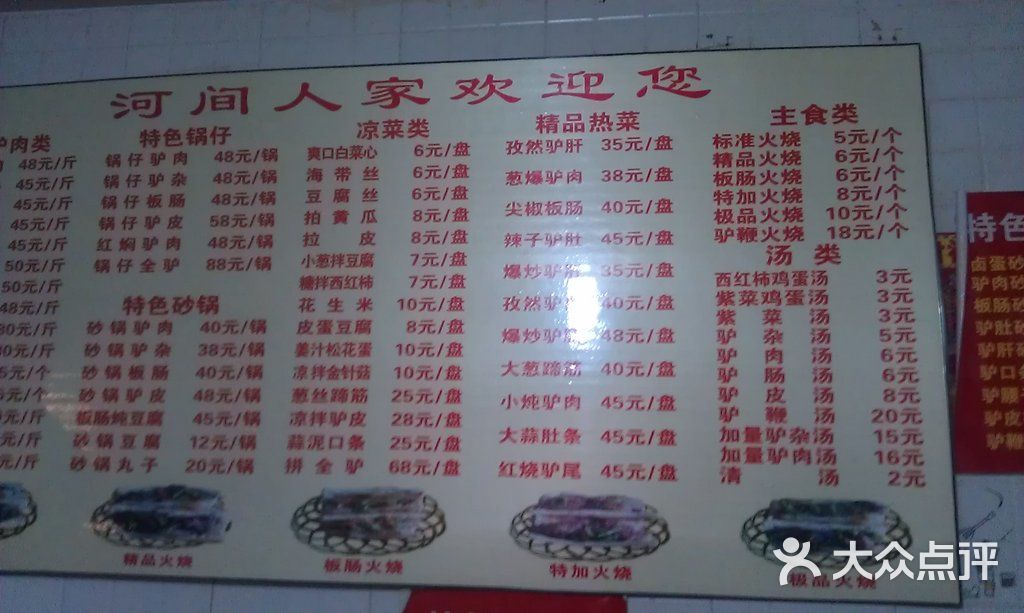 河间人家欢迎您
肉类
48元/斤
45元/斤
45元/斤
45元/斤
45元/斤
50元/斤
50元/斤
48元/斤
特色锅仔
锅仔驴肉 48元/锅
锅仔驴杂 48元/锅
锅仔板肠 48元/锅
锅仔驴皮 58元/锅
红焖驴肉 48元/锅
锅仔全驴 88元/锅
特色砂锅
砂锅驴肉 40元/锅
砂锅驴杂 38元/锅
砂锅板肠 40元/锅
砂锅驴皮 48元/锅
板肠炖豆腐 45元/锅
砂锅豆腐 12元/锅
砂锅丸子 20元/锅
凉菜类
爽口白菜心 6元/盘
海带丝 6元/盘
豆腐丝 6元/盘
拍黄瓜 8元/盘
拉皮 8元/盘
小葱拌豆腐 7元/盘
糖拌西红柿 7元/盘
花生米 10元/盘
皮蛋豆腐 8元/盘
姜汁松花蛋 10元/盘
凉拌金针菇 10元/盘
葱丝蹄筋 25元/盘
凉拌驴皮 28元/盘
蒜泥口条 25元/盘
拼全驴 68元/盘
精品热菜
孜然驴肝 35元/盘
葱爆驴肉 38元/盘
尖椒板肠 40元/盘
辣子驴肚 45元/盘
爆炒驴 35元/盘
孜然驴 40元/盘
爆炒驴 48元/盘
大葱蹄筋 40元/盘
小炖驴肉 45元/盘
大蒜肚条 45元/盘
红烧驴尾 45元/盘
主食类
标准火烧 5元/个
精品火烧 6元/个
板肠火烧 6元/个
特加火烧 8元/个
极品火烧 10元/个
驴鞭火烧 18元/个
汤类
西红柿鸡蛋汤 3元
紫菜鸡蛋汤 3元
紫菜汤 3元
驴杂汤 5元
驴肉汤 6元
驴肠汤 6元
驴皮汤 8元
驴鞭汤 20元
加量驴杂汤 15元
加量驴肉汤 16元
清汤 2元
精品火烧
板肠火烧
特加火烧
极品火烧
特色
卤蛋砂
驴肉砂
板肠砂
驴肚砂
驴肝砂
驴口条
驴腰
驴皮
驴鞭
大众点评